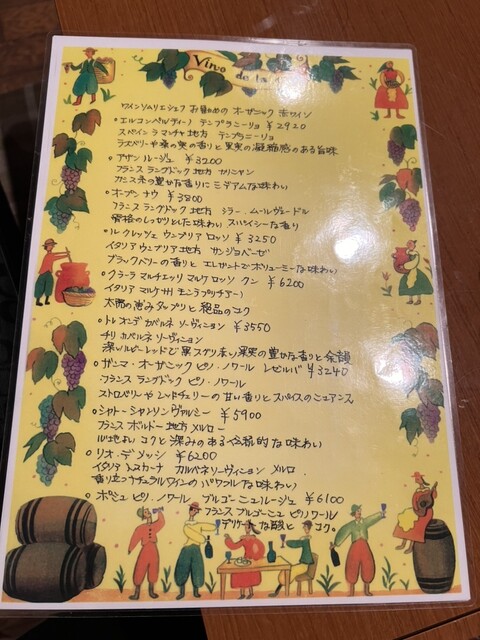 Vino de la
ワインソムリエシェフ お勧めの オーガニック 赤ワイン
○エルコンベルティード テンプラニーリョ ¥2920
スペイン ラマンチャ 地方 テンプラニーリョ
ラズベリーや桑の実の香りと果実の凝縮感のある旨味
○アサン ルージュ ¥3200
フランス ラングドック 地方 カリニャン
カシス系の豊かな香りにミデアムな味わい
○オープン ナウ ¥3800
フランス ラングドック 地方 シラー、ムールヴェードル
骨格のしっかりとした味わい スパイシーな香り
○ル・クレッシェ ウンブリア ロッソ ¥3250
イタリア ウンブリア地方 サンジョベーゼ
ブラックベリーの香りと エレガントでボリューミーな味わい
○クラーラ マルチェッリ マルケ ロッソ クン ¥6200
イタリア マルケ州 モンテプルチアーノ
太陽の恵みタップリと 絶品のコク
○トレオン・デ カベルネ ソーヴィニョン ¥3550
チリ カベルネ ソーヴィニョン
深いルビーレッドで黒スグリ赤い果実の豊かな香りと余韻
○ザンマ・オーガニック ピノ・ノワール レゼルバ ¥3240
フランス ラングドック ピノ・ノワール
ストロベリーやレッドチェリーの甘い香りとスパイスのニュアンス
○シャトー・シャソリン ヴァルミー ¥5900
フランス ボルドー 地方 メルロー
心地よい コクと 深みのある伝統的な味わい
○リオ・デ メッシ ¥6200
イタリア トスカーナ カルベネソーヴィニョン メルロ
香り立つナチュラルワインのパワフルな味わい
○ポミュ ピノ・ノワール ブルゴーニュルージュ ¥6100
フランス ブルゴーニュ ピノノワール
デリケートな酸と コク。